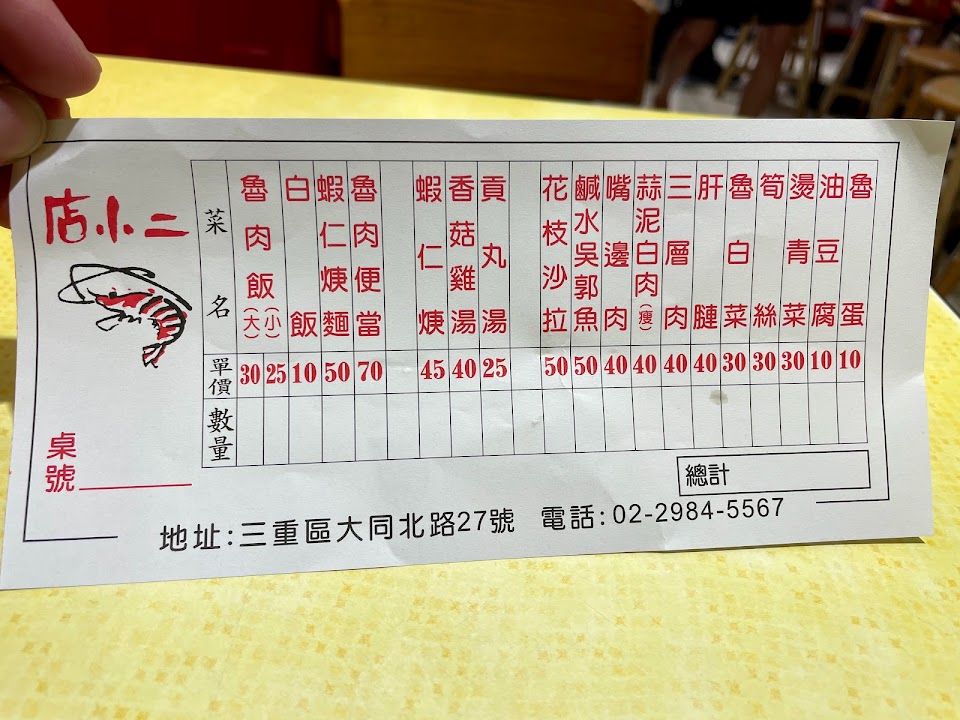 店小二
桌號
菜名 單價 數量
魯肉飯(大) 30
(小) 25
白飯 10
蝦仁焿麵 50
魯肉便當 70
蝦仁焿 45
香菇雞湯 40
貢丸湯 25
花枝沙拉 50
鹹水吳郭魚 50
嘴邊肉 40
蒜泥白肉(瘦) 40
三層肉 40
肝𦟪 40
魯白菜 30
筍絲 30
燙青菜 30
油豆腐 10
魯蛋 10
總計
地址:三重區大同北路27號 電話:02-2984-5567